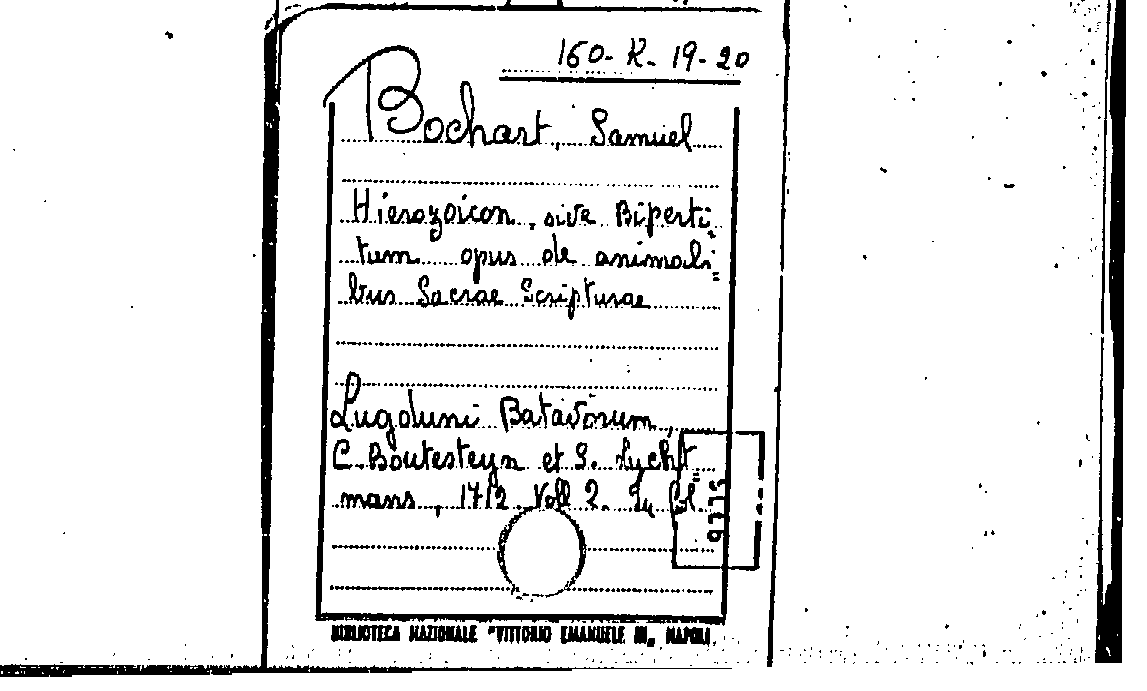 160-R-19-20
Bochart, Samuel
Hierozoicon, sive Biperti-
tum opus de animali=
bus Sacrae Scripturae
Lugduni Batavorum,
C. Boutesteyn et S. Lucht=
mans, 1712. Voll 2. In fol.
BIBLIOTECA NAZIONALE "VITTORIO EMANUELE III„ NAPOLI